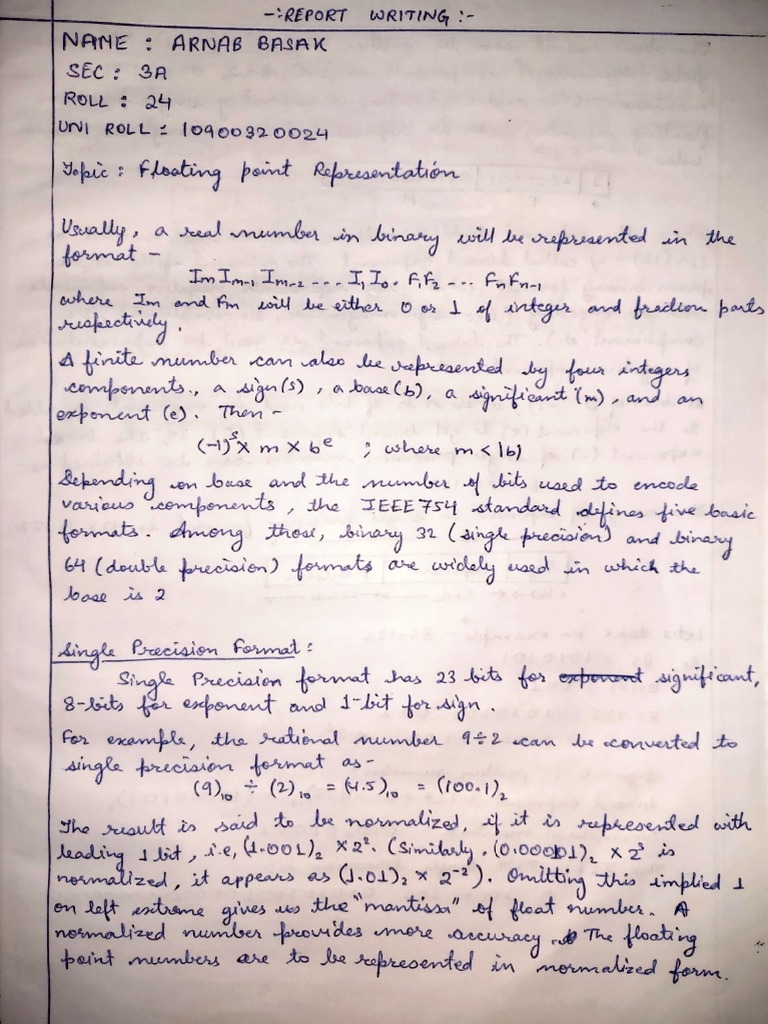 -:REPORT WRITING:-
NAME : ARNAB BASAK
SEC : 3A
ROLL : 24
UNI ROLL : 10900320024
Topic : Floating point Representation
Usually, a real number in binary will be represented in the
format -
Im Im-1 Im-2 ... I1 I0. F1 F2 ... Fn Fn-1
where Im and Fm will be either 0 or 1 of integer and fraction parts
respectively.
A finite number can also be represented by four integers
components., a sign(s), a base(b), a significant (m), and an
exponent (e). Then -
(-1)^s x m x b^e ; where m < |b|
Depending on base and the number of bits used to encode
various components, the IEEE 754 standard defines five basic
formats. Among those, binary 32 (single precision) and binary
64 (double precision) formats are widely used in which the
base is 2
Single Precision Format :
Single Precision format has 23 bits for exponent significant,
8-bits for exponent and 1-bit for sign.
For example, the rational number 9÷2 can be converted to
single precision format as-
(9)10 ÷ (2)10 = (4.5)10 = (100.1)2
The result is said to be normalized, if it is represented with
leading 1 bit, i.e, (1.001)2 x 2². (Similarly, (0.00001)2 x 2³ is
normalized, it appears as (1.01)2 x 2^-2). Omitting this implied 1
on left extreme gives us the "mantissa" of float number. A
normalized number provides more accuracy. The floating
point numbers are to be represented in normalized form.